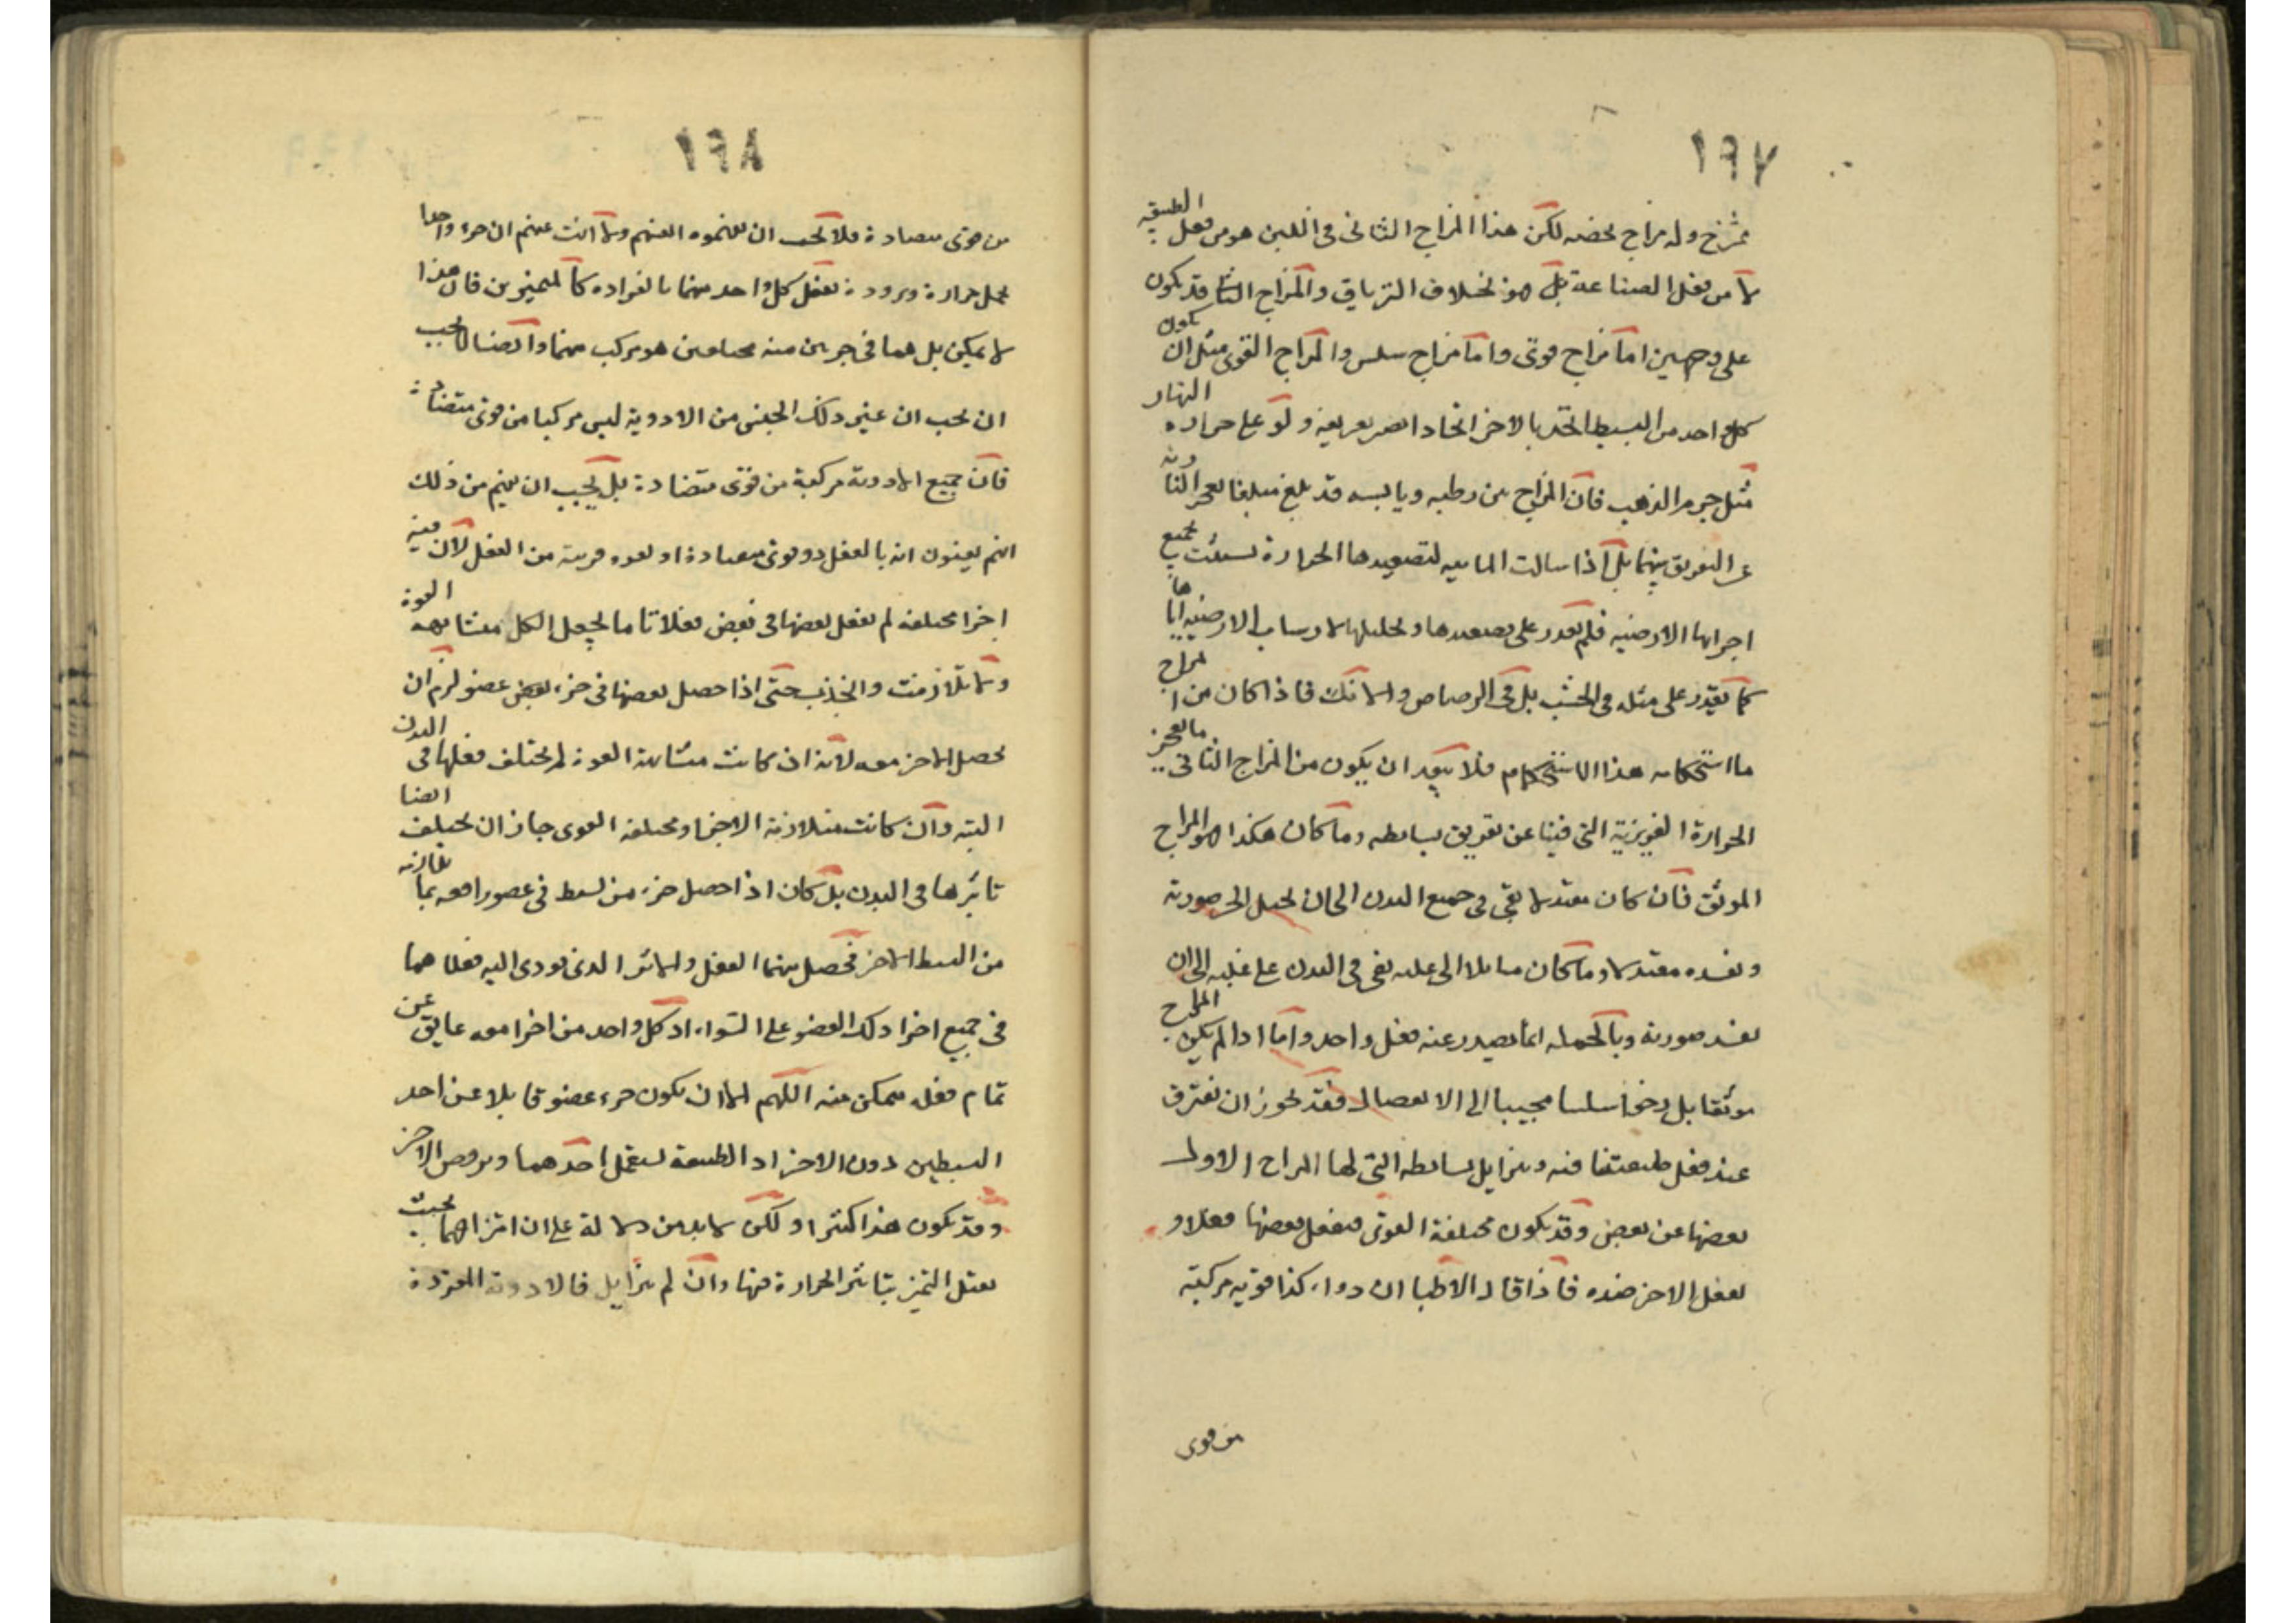 ١٩٧
تمتزج وله مزاج يخصه لكن هذا المزاج الثانى فى اللبن هو من فعل الطبيعة
لا من فعل الصناعة بل هو بخلاف الترياق والمزاج الثانى قد يكون
على وجهين اما مزاج قوى واما مزاج سلس والمزاج القوى مثل ان يكون
كل واحد من البسيط اتحد بالاخر اتحادا يعسر تفريقه ولو على حرارة النار
مثل جرم الذهب فان المزاج من رطبه ويابسه قد بلغ مبلغا يعجز النارية
عن التفريق بينهما بل اذا سالت المائيه لتصعيدها الحرارة تشبثت بجميع
اجزائها الارضيه فلم تقدر على تصعيدها وتحليلها لارساب الارضيه اياها
كما تقدر على مثله فى الخشب بل فى الرصاص والانك فاذا كان من المزاج
ما استحكامه هذا الاستحكام فلا يبعد ان يكون من المزاج الثانى ما تعجز
الحرارة الغريزية التى فينا عن تفريق بسائطه وما كان هكذا هو المزاج
الموثق فان كان معتدلا بقى فى جميع البدن الى ان يحيل الى صورته
ويفسده معتدلا وما كان مائلا الى غلبه بقى فى البدن على غلبه الى ان
يفسد صورته وبالجمله انما يصدر عنه فعل واحد واما اذا لم يكن المزاج
موثقا بل رخوا سلسا مجيبا الى الانفصال فقد يجوز ان تفترق
عند فعل طبيعتنا فيه ويتزايل بسائطه التى لها المزاج الاول
بعضها عن بعض وقد يكون مختلفة القوى فيفعل بعضها فعلا و
يفعل الاخر ضده فاذا قال الاطبا ان دواء كذا قوته مركبة
من قوى
١٩٨
من قوى متضادة فلا يجب ان تفهموه انفسهم ولا انت عنهم ان جزء واحدا
يحمل حرارة وبرودة يفعل كل واحد منهما بانفراده كالمتميزين فان هذا
لا يمكن بل هما فى جزئين منه مختلفين هو مركب منهما وايضا لا يجب
ان يحسب ان غير ذلك الجنس من الادوية ليس مركبا من قوى متضادة
فان جميع الادوية مركبة من قوى متضادة بل يجب ان يفهم من ذلك
انهم يعنون انه بالفعل ذو قوى متضادة او بقوه قريبة من الفعل لان فيه
اجزا مختلفة لم يفعل بعضها فى بعض فعلا تاما يجعل الكل متشابه القوة
ولا تلازمت والتحدت حتى اذا حصل بعضها فى جزء بعض عضو لزم ان
يحصل الاخر معه لانه ان كانت متشابهة القوة لم يختلف فعلها فى البدن
البته وان كانت متلازمة الاجزا ومختلفة القوى جاز ان يختلف ايضا
تاثيرها فى البدن بل كان اذا حصل جزء من بسيط فى عضو رافقه بما يقارنه
من البسيط الاخر فحصل منهما الفعل والاثر الذى يودى اليه فعلاهما
فى جميع اجزا ذلك العضو على السواء اذ كل واحد من اجزا معه عايق عن
تمام فعله متمكن منه اللهم الا ان يكون جزء عضو قابلا عن احد
البسيطين دون الاخر او الطبيعة تستعمل احدهما وترفض الاخر
وقد يكون هذا كثيرا ولكن لا بد من دلالة على ان امتزاجهما بحيث
يقبل التميز بتاثير الحرارة فيها وان لم يزايل فالادوية المفردة